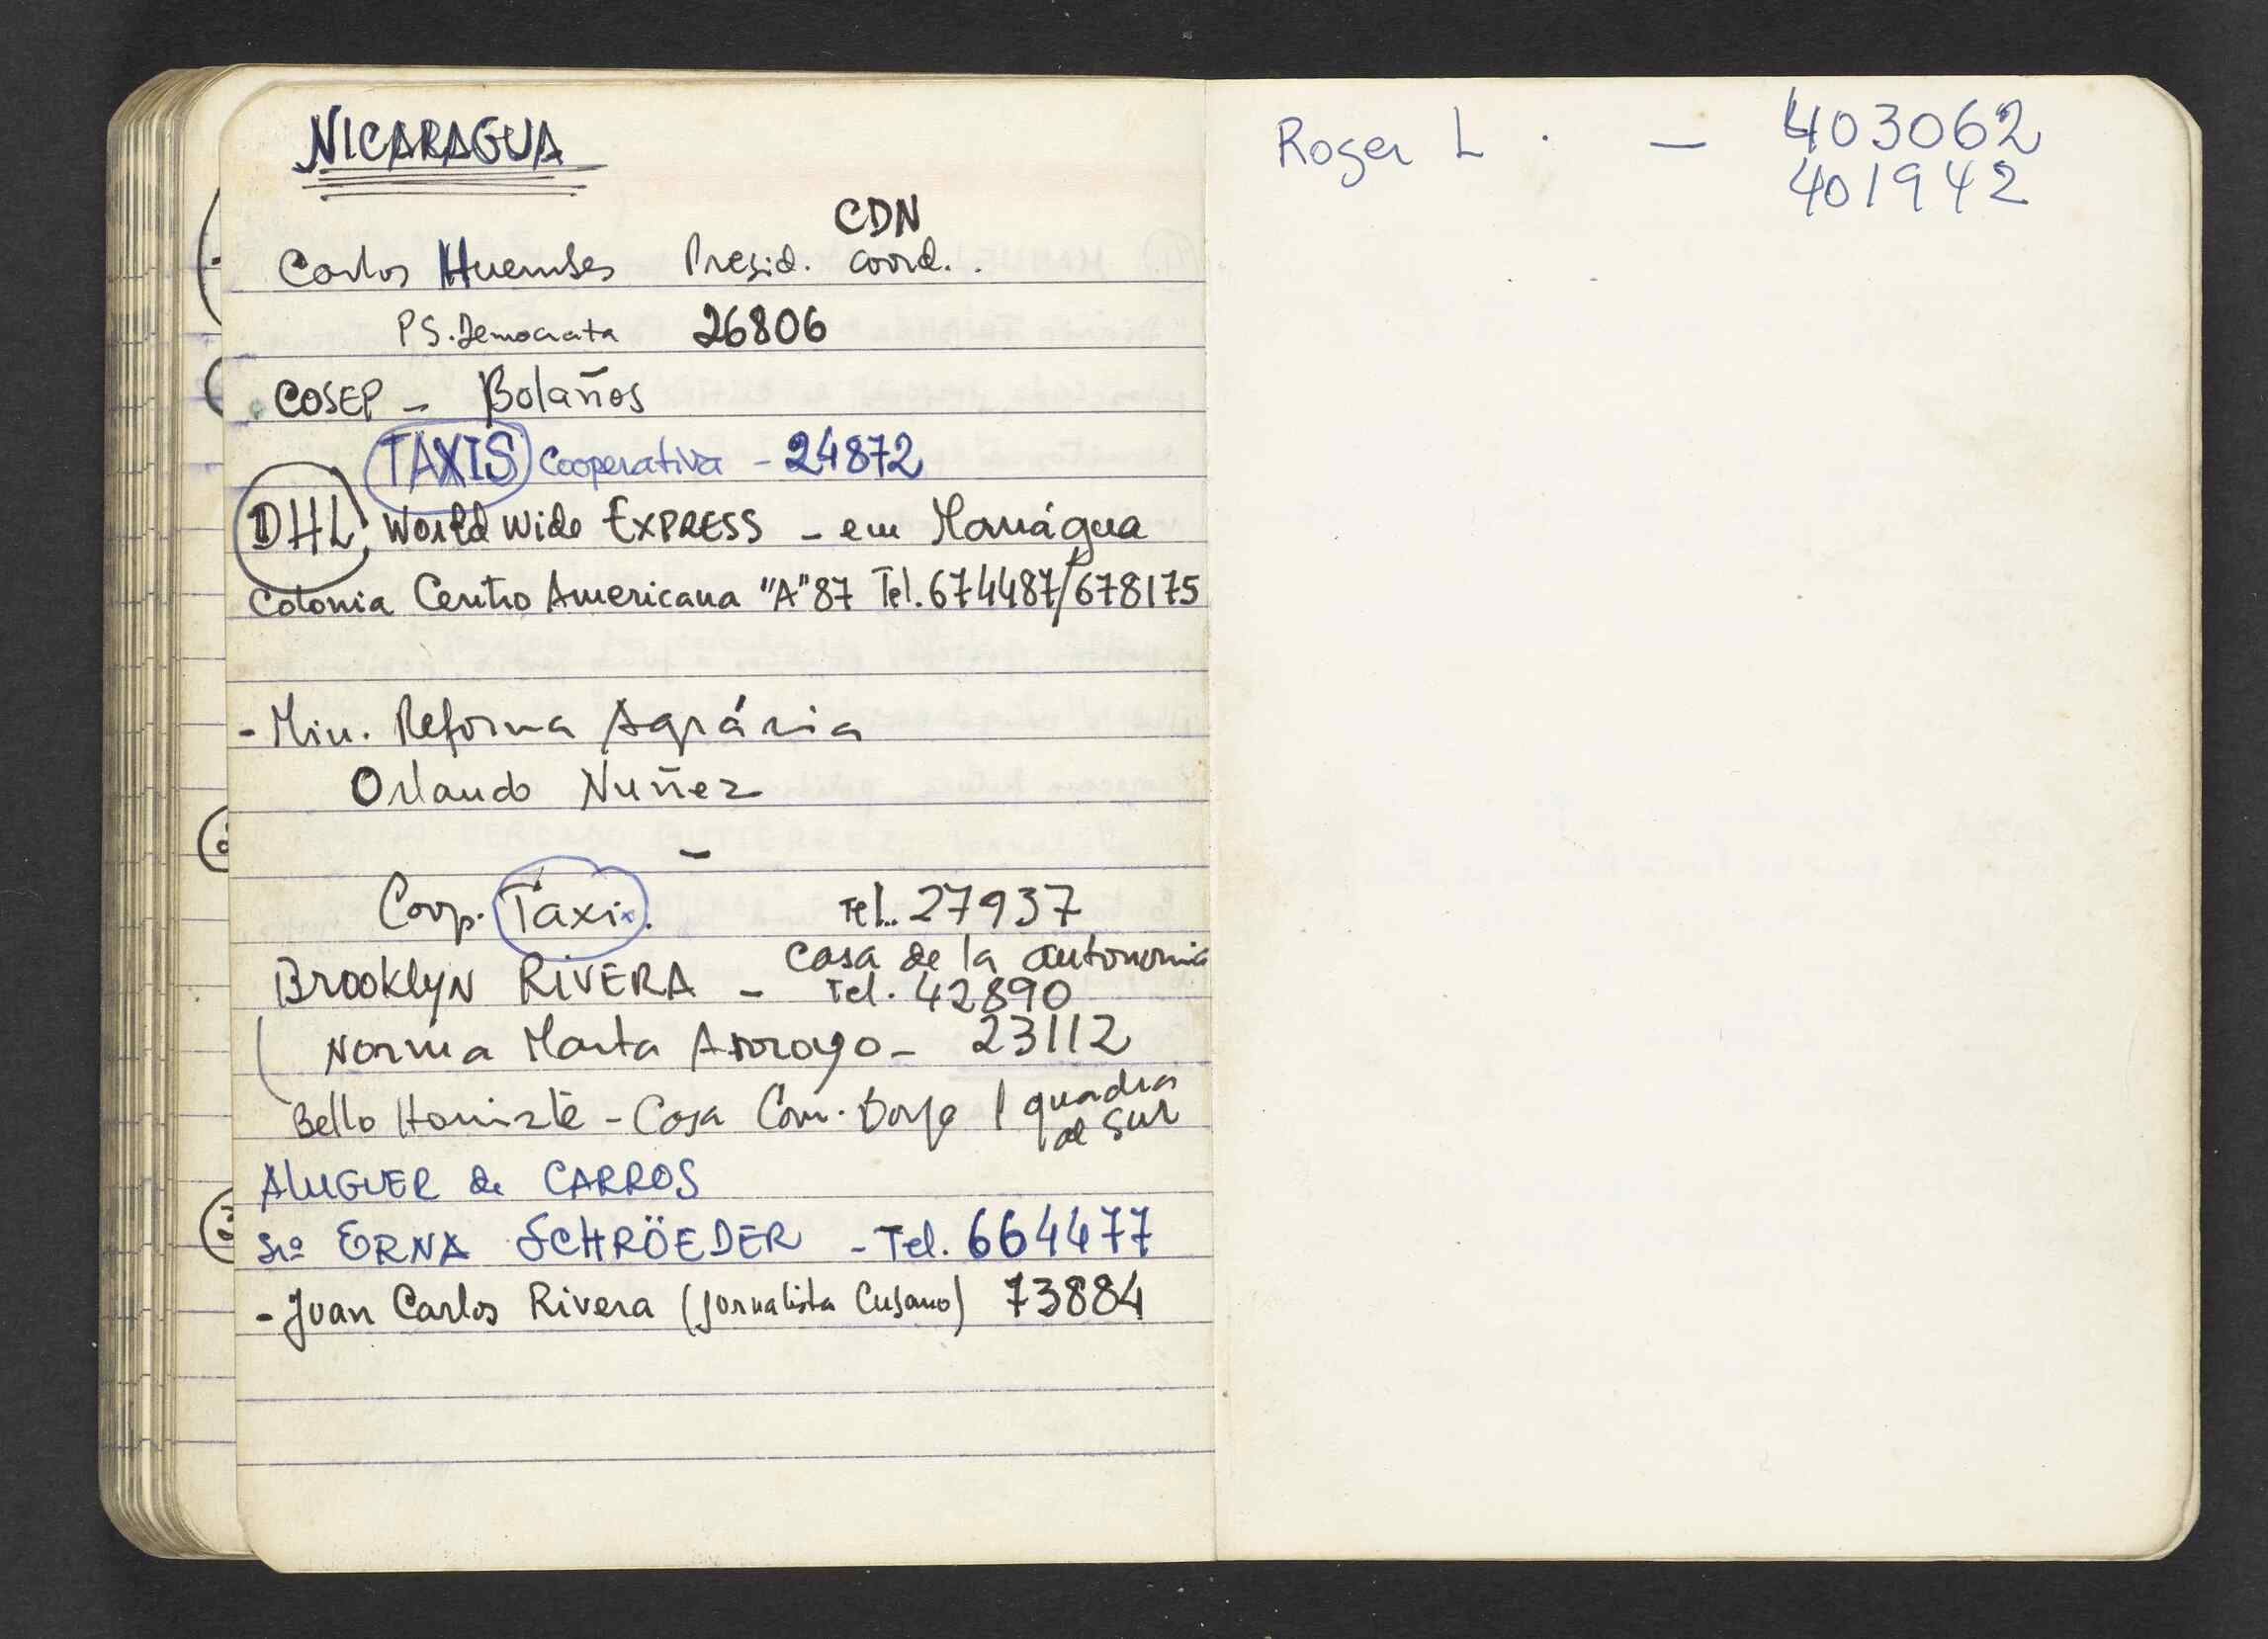 NICARAGUA
CDN
Carlos Huembes Presid. coord..
PS. Democrata 26806
COSEP - Bolaños
TAXIS Cooperativa - 24872
DHL, World Wide EXPRESS - em Manágua
Colonia Centro Americana "A" 87 Tel. 674487/678175
- Min. Reforma Agrária
Orlando Nuñez
-
Coop. Taxi. Tel.. 27937
Casa de la autonomia
Brooklyn RIVERA - Tel. 42890
Norma Marta Arroyo - 23112
Bello Horizte - Casa Com. Borge 1 quadra
al sur
ALUGUER de CARROS
Srª ERNA SCHRÖEDER - Tel. 664477
- Juan Carlos Rivera (jornalista Cubano) 73884
Roger L. - 403062
401942